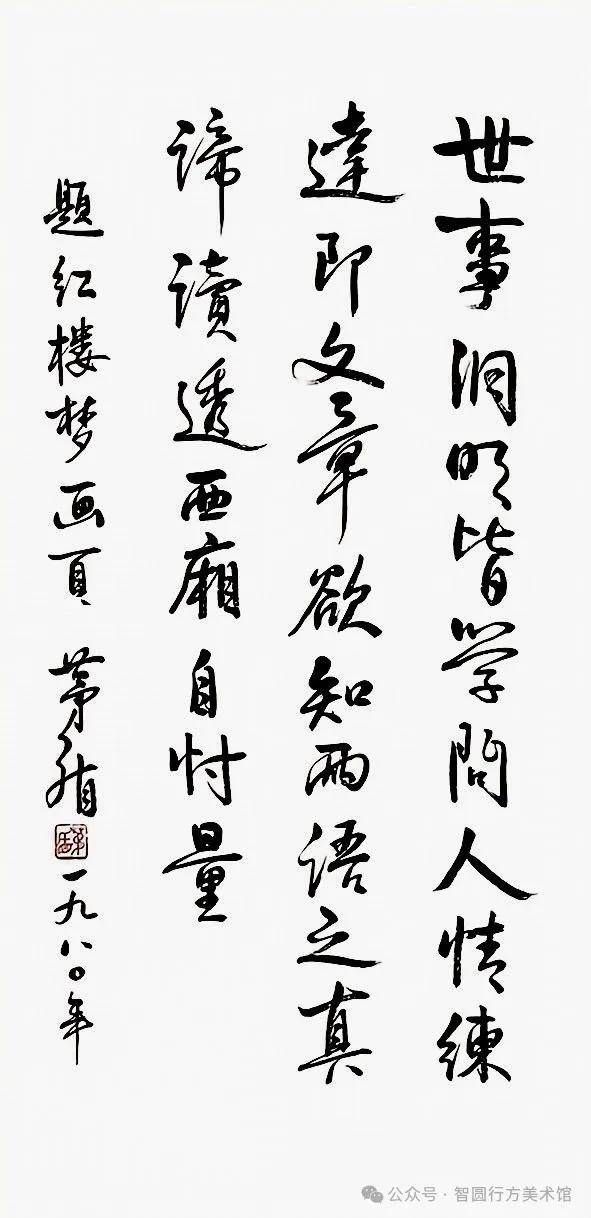 世事洞明皆学問人情練
達即文章欲知两語之真
谛讀透西廂自忖量
题红楼梦画頁 茅盾
一九八〇年
公众号·智圆行方美术馆